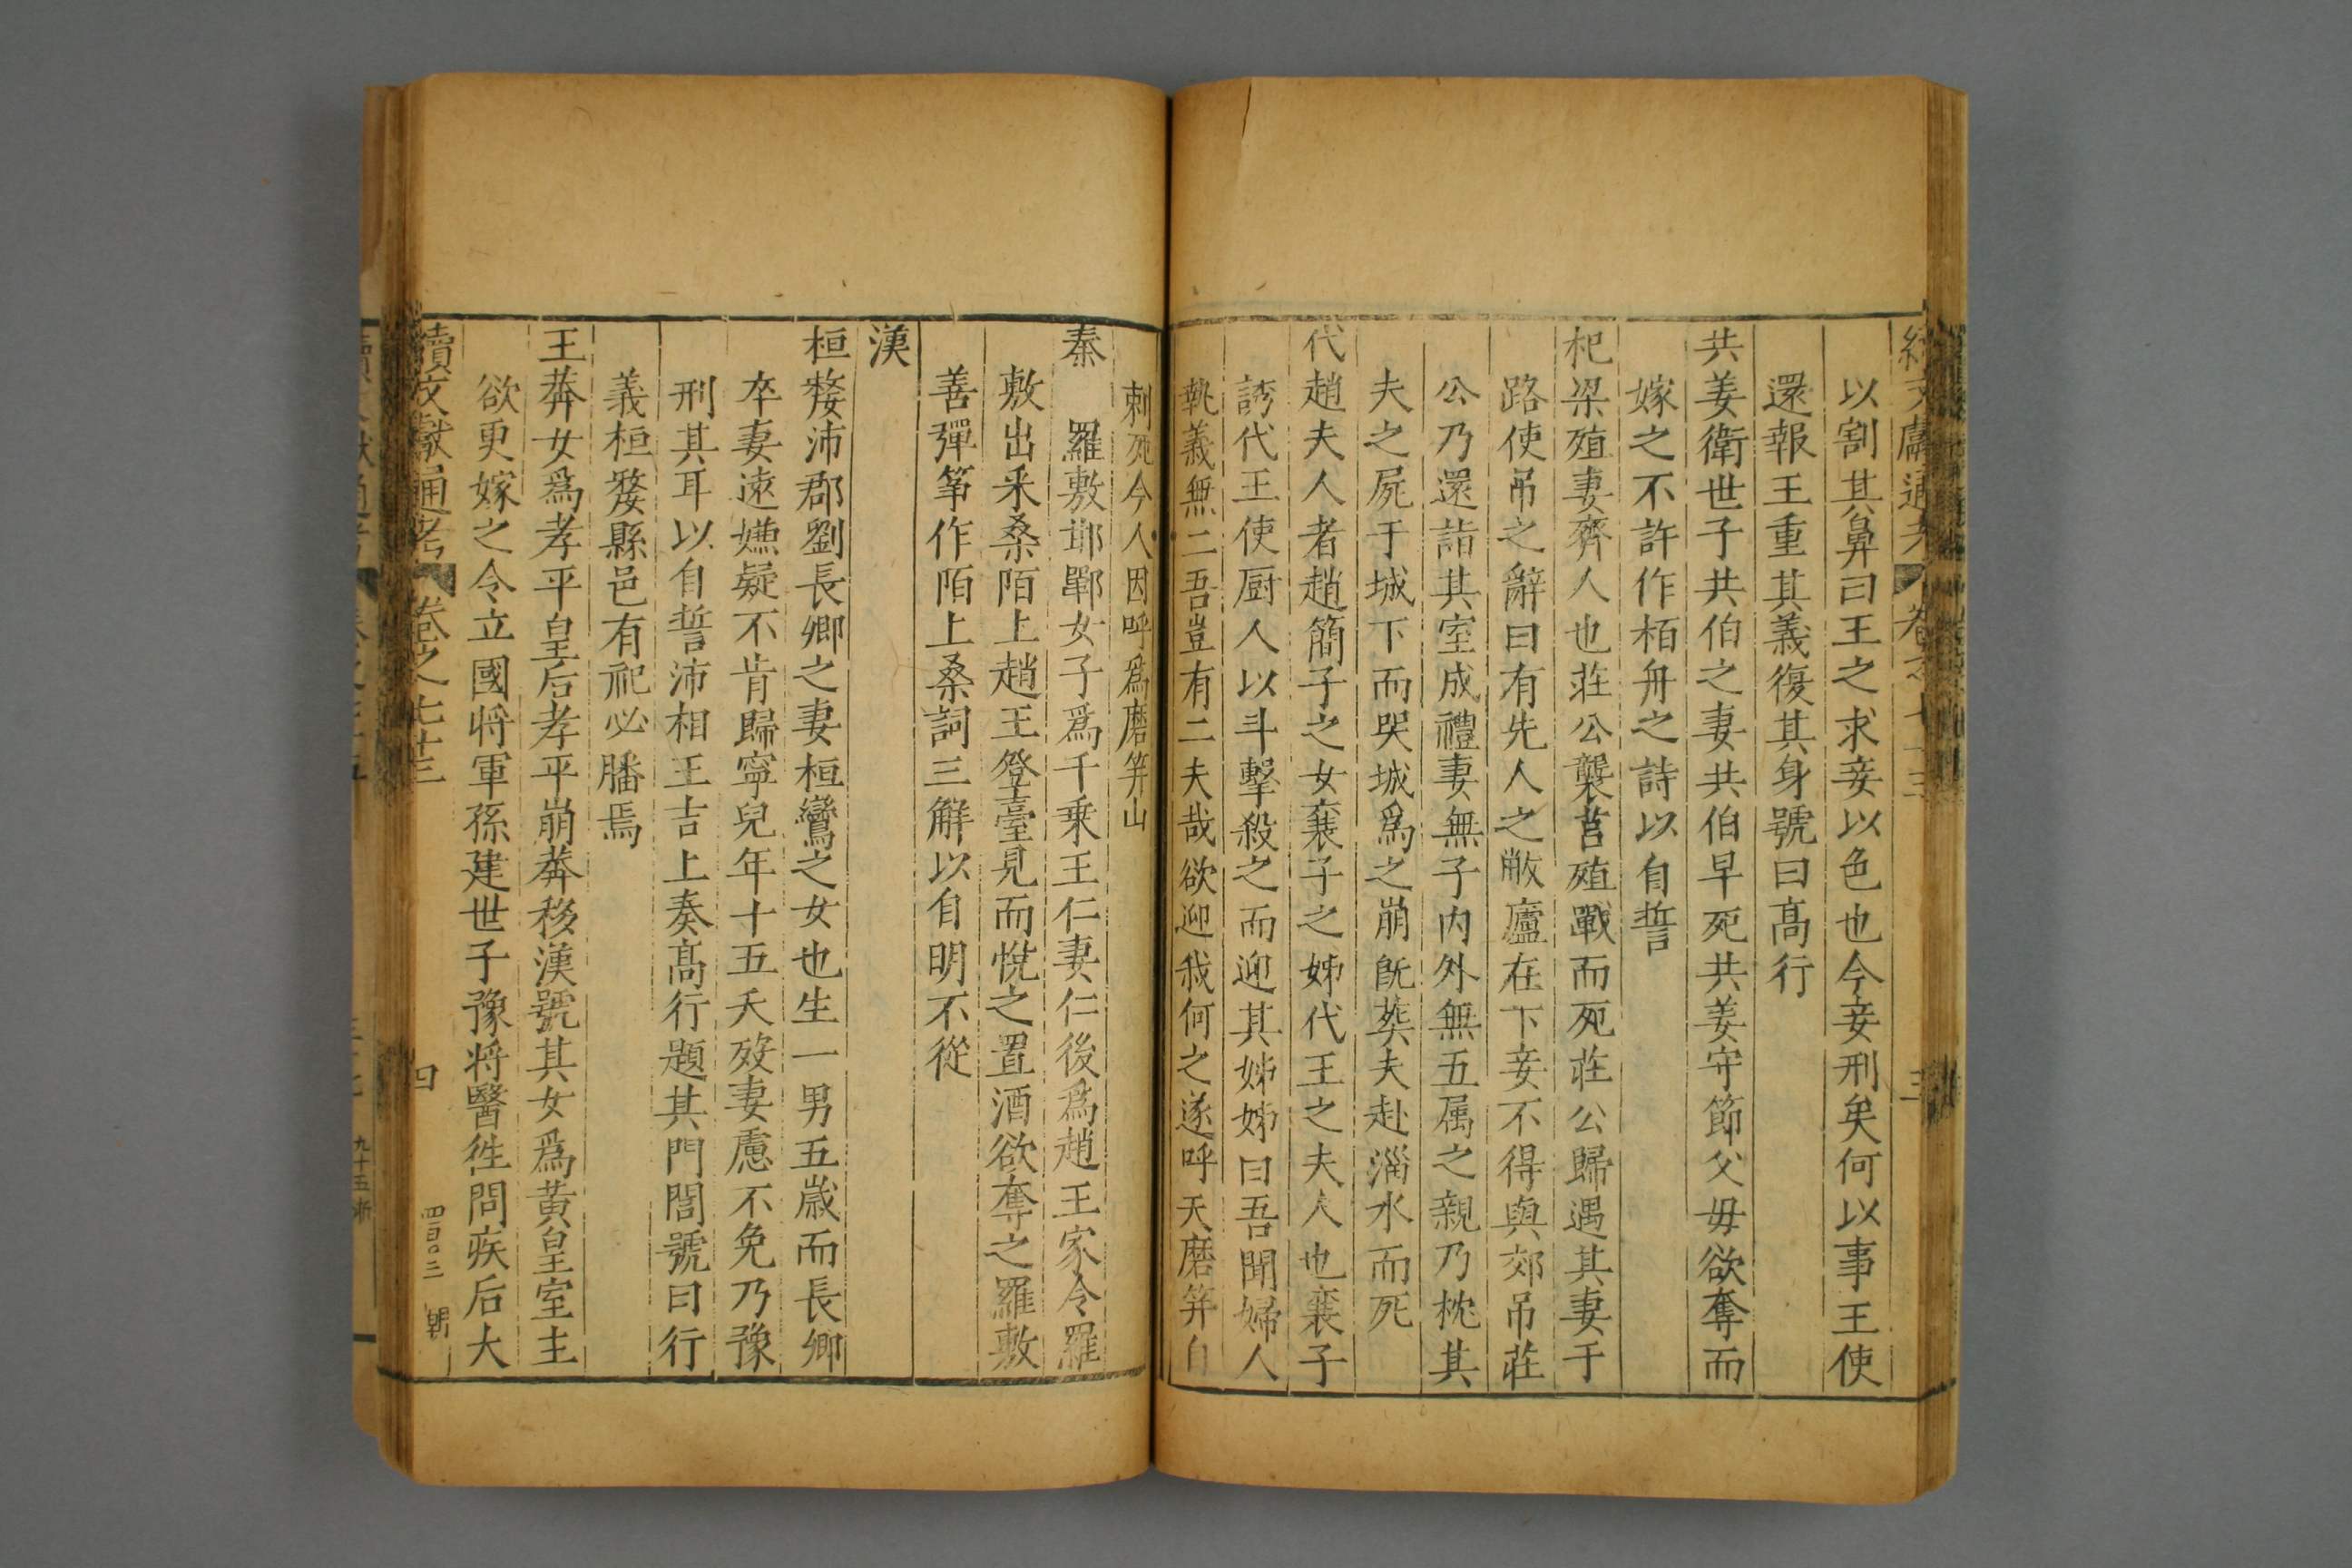 續文獻通考 卷之七十三 三
以割其鼻曰王之求妾以色也今妾刑矣何以事王使
還報王重其義復其身號曰髙行
共姜衛世子共伯之妻共伯早死共姜守節父毋欲奪而
嫁之不許作栢舟之詩以自誓
杞梁殖妻齊人也莊公襲莒殖戰而死莊公歸遇其妻于
路使吊之辭曰有先人之敝廬在下妾不得與郊吊莊
公乃還詣其室成禮妻無子内外無五属之親乃枕其
夫之屍于城下而哭城爲之崩旣葬夫赴淄水而死
代趙夫人者趙簡子之女襄子之姊代王之夫人也襄子
誘代王使厨人以斗擊殺之而迎其姊姊曰吾聞婦人
執義無二吾豈有二夫哉欲迎我何之遂呼天磨笄自
刺死今人因呼爲磨笄山
秦 羅敷邯鄲女子爲千乗王仁妻仁後爲趙王家令羅
敷出釆桑陌上趙王登臺見而悅之置酒欲奪之羅敷
善彈筝作陌上桑詞三解以自明不從
漢
桓嫠沛郡劉長卿之妻桓鸞之女也生一男五歲而長卿
卒妻逺嫌疑不肯歸寧兒年十五夭殁妻慮不免乃豫
刑其耳以自誓沛相王吉上奏髙行題其門閭號曰行
義桓嫠縣邑有祀必膰焉
王莽女爲孝平皇后孝平崩莽移漢號其女爲黃皇室主
欲更嫁之令立國將軍孫建世子豫將醫徃問疾后大
續文獻通考 卷之七十三 四 四百〇三